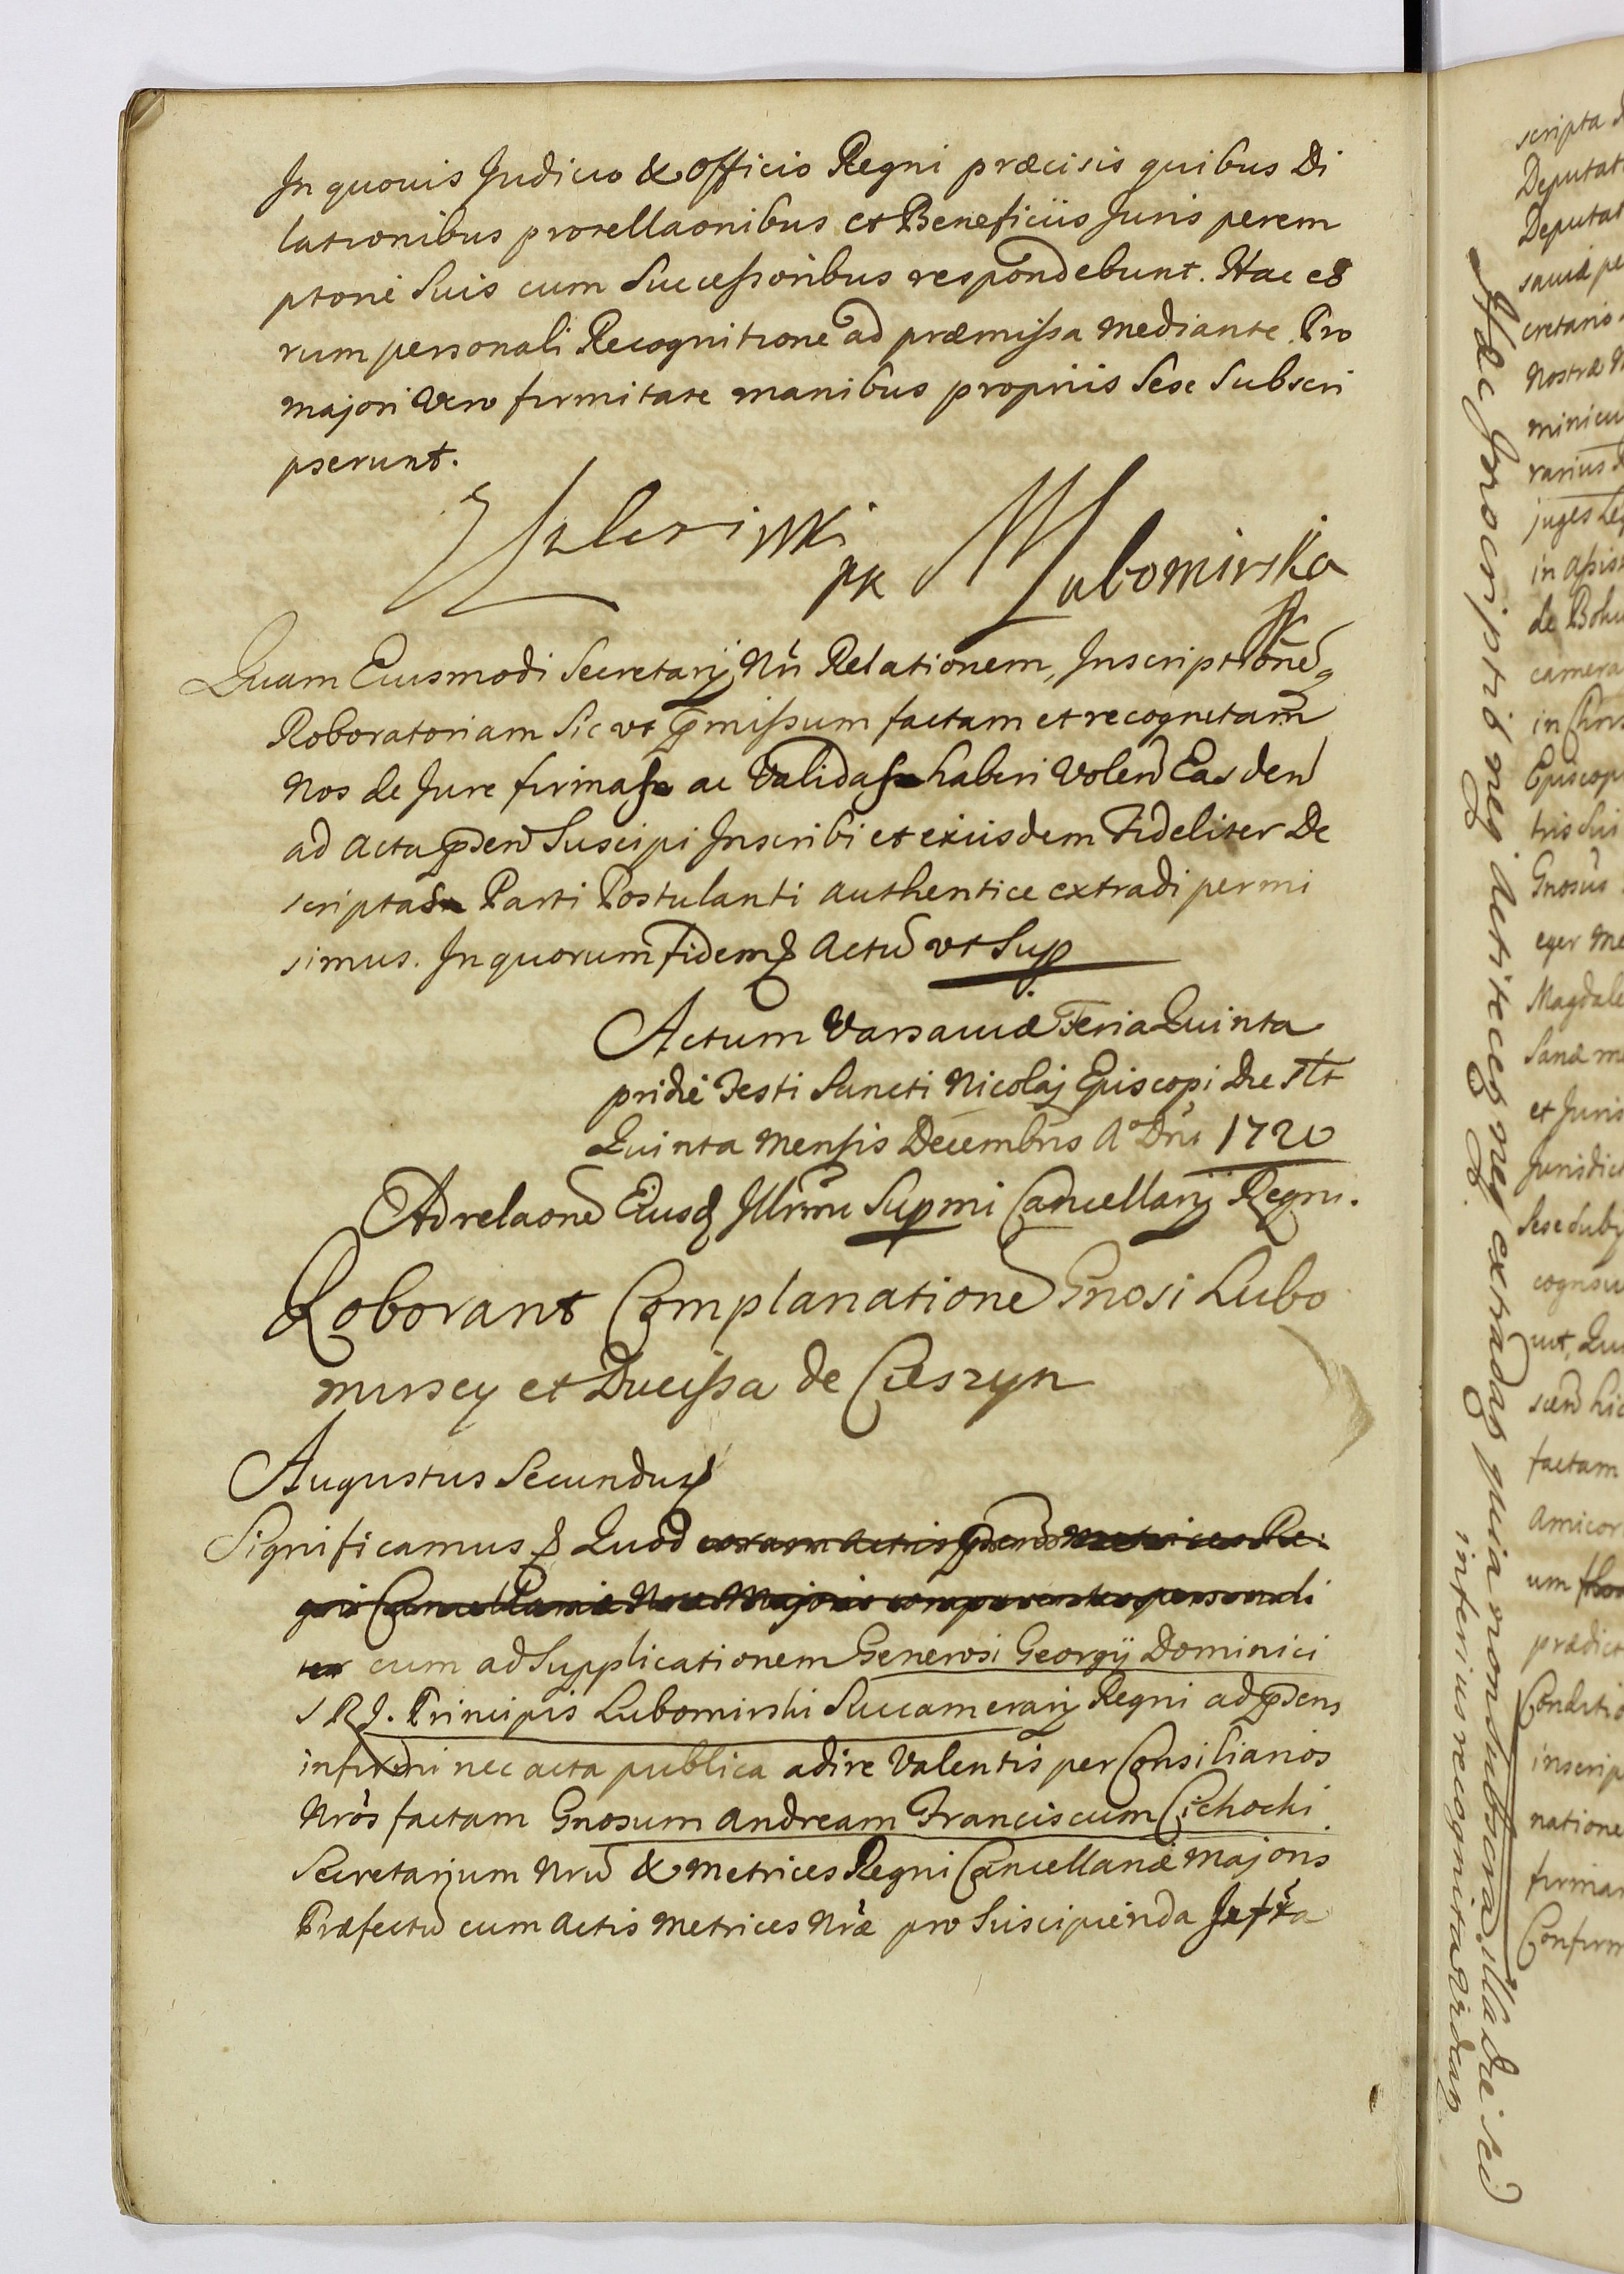 In quovis Judicio & Officio Regni præcisis quibus Di
lationibus prorellaonibus et Beneficiis Juris perem
ptorie Suis cum Successoribus respondebunt. Hac eo
rum personali Recognitione ad præmissa mediante. Pro
majori Vero firmitate manibus propriis Sese Subscri
pserunt.
Lubomirska
Quam Eiusmodi Secretarij Nri Relationem, Inscriptione
Roboratoriam Sic vt pmissum factam et recognitam
Nos de Jure firmas ac Validas haberi Volen Easdem
ad Acta pden Suscipi Inscribi et eiusdem Fideliter De
scriptas Parti Postulanti authentice extradi permi
simus. In quorum fidem Actu vt Sup
Actum Varsaviæ Feria Quinta
pridie Festi Sancti Nicolaj Episcopi Die Slt
Quinta Mensis Decembris Ao Dni 1720
Ad relaone Eiusd Illrmi Supmi Cancellarij Regni.
Roborant Complanatione Gnosi Lubo
mirscy et Ducissa de Cieszyn
Augustus Secundus
Significamus Quod coram Actis pden Metrices Re
gni Cancellariæ Nræ Majoris comparentes personali
ter cum ad Supplicationem Generosi Georgij Dominici
S R J. Principis Lubomirski Succamerarij Regni ad pdens
infirmi nec acta publica adire Valentis per Consiliarios
Nros factam Gnosum Andream Franciscum Cichocki
Secretarium Nru & Metrices Regni Cancellariæ Majoris
Præfectu cum Actis Metrices Nræ pro Suscipienda
scripta
Deputat
Deputat
cretario
Nostræ
minicu
rarius
juges Leg
de Bohu
camera
in Chris
Episcop
tris Sui
Gnosus
eger me
Magdale
Sanæ me
et Juris
Jurisdict
Sese Sub
factam
Amicor
um
prædict
Conditio
inscrip
natione
firmar
Confirm
extradas quia non subscra illa die sed
inferius recognita